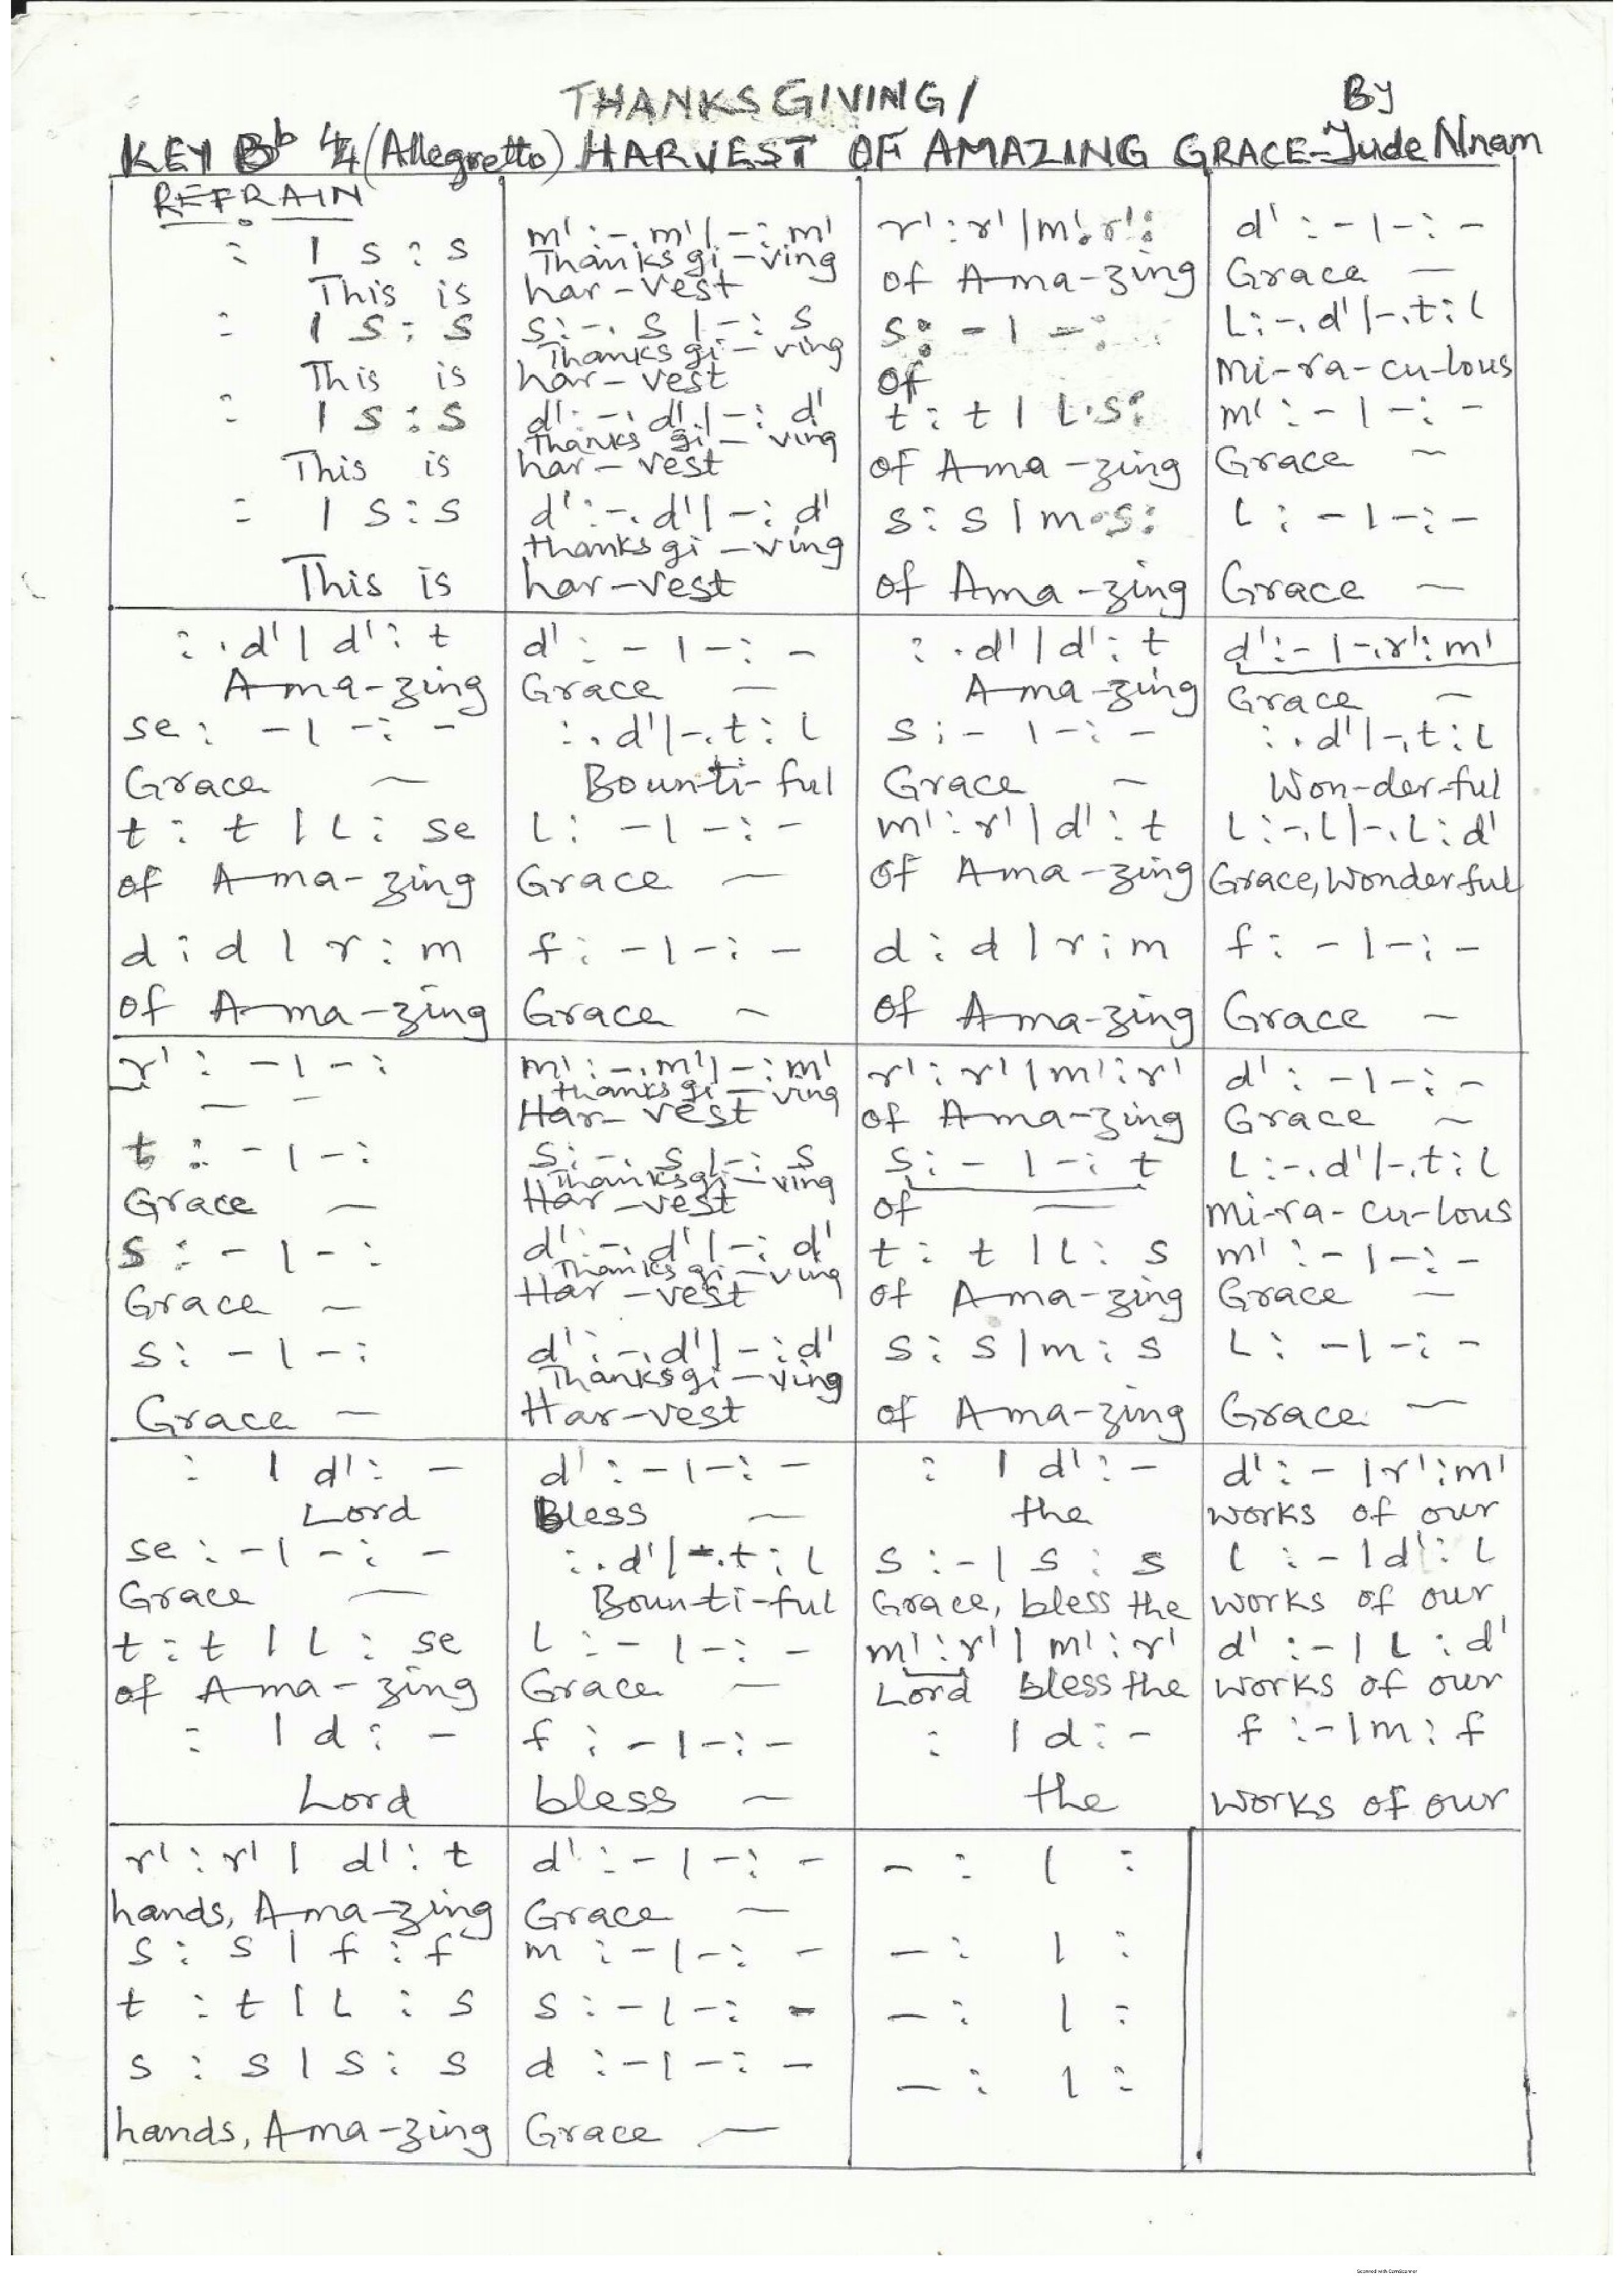 THANKSGIVING/ By
KEY Bb 4/4 (Allegretto) HARVEST OF AMAZING GRACE - Jude Nnam
REFRAIN
: | s : s m' : -. m' | - : m' r' : r' | m'. r' : d' : - | - : -
Thanks gi - ving
This is har - vest of A-ma-zing Grace —
: | s : s s : -. s | - : s s : - | - : L : -. d' | -. t : l
Thanks gi - ving
This is har - vest of Mi-ra-cu-lous
: | s : s d' : -. d' | - : d' t : t | l . s : m' : - | - : -
Thanks gi - ving
This is har - vest of A-ma-zing Grace —
: | s : s d' : -. d' | - : d' s : s | m . s : l : - | - : -
thanks gi - ving
This is har-vest of Ama-zing Grace —
: . d' | d' : t d' : - | - : - : . d' | d' : t d' : - | -. r' : m'
A-ma-zing Grace — A-ma-zing Grace —
se : - | - : - : . d' | -. t : l s : - | - : - : . d' | -. t : l
Grace — Boun-ti-ful Grace — Won-der-ful
t : t | l : se l : - | - : - m' : r' | d' : t l : -. l | -. l : d'
of A-ma-zing Grace — of A-ma-zing Grace, Wonderful
d : d | r : m f : - | - : - d : d | r : m f : - | - : -
of A-ma-zing Grace — of A-ma-zing Grace —
r' : - | - : m' : -. m' | - : m' r' : r' | m' : r' d' : - | - : -
thanks gi - ving
— — Har - vest of A-ma-zing Grace —
t : - | - : s : -. s | - : s s : - | - : t l : -. d' | -. t : l
Thanks gi - ving
Grace — Har - vest of — Mi-ra-cu-lous
s : - | - : d' : -. d' | - : d' t : t | l : s m' : - | - : -
Thanks gi - ving
Grace — Har - vest of A-ma-zing Grace —
s : - | - : d' : -. d' | - : d' s : s | m : s l : - | - : -
Thanks gi - ving
Grace — Har-vest of A-ma-zing Grace —
: | d' : - d' : - | - : - : | d' : - d' : - | r' : m'
Lord Bless — the works of our
se : - | - : - : . d' | -. t : l s : - | s : s l : - | d' : l
Grace — Boun-ti-ful Grace, bless the works of our
t : t | l : se l : - | - : - m' : r' | m' : r' d' : - | l : d'
of A-ma-zing Grace — Lord bless the works of our
: | d : - f : - | - : - : | d : - f : - | m : f
Lord bless — the works of our
r' : r' | d' : t d' : - | - : - - : | :
hands, A-ma-zing Grace —
s : s | f : f m : - | - : - - : | :
t : t | l : s s : - | - : - - : | :
s : s | s : s d : - | - : - - : | :
hands, A-ma-zing Grace —
Scanned with CamScanner